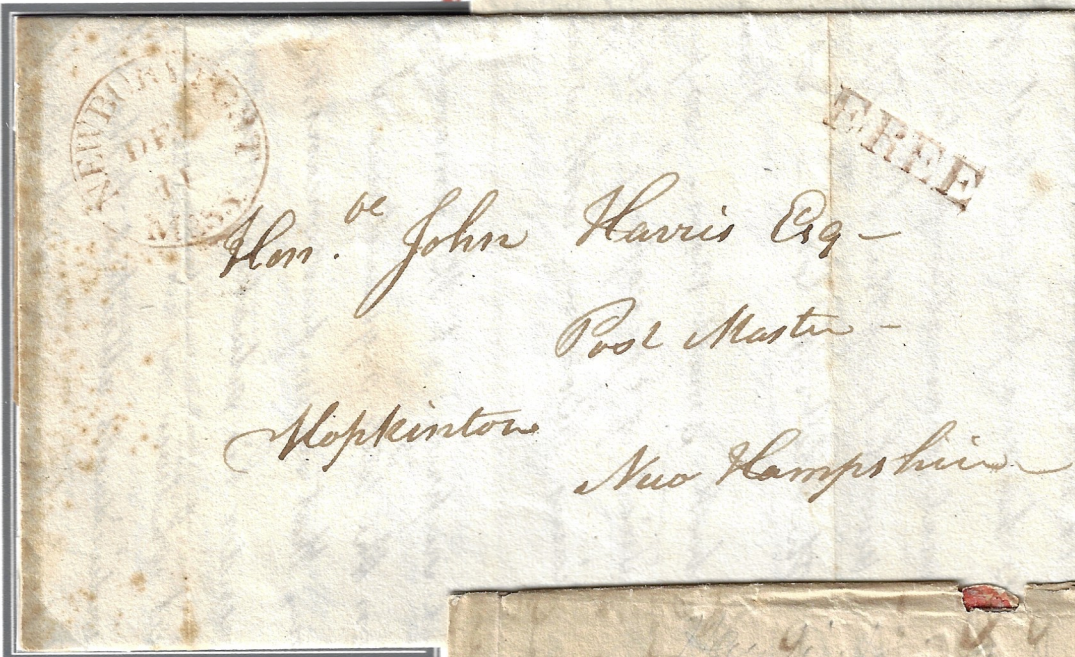 NEWBURYPORT
DEC
11
MASS.
FREE
Hon.ble John Harris Esq -
Post Master -
Hopkinton
New Hampshire